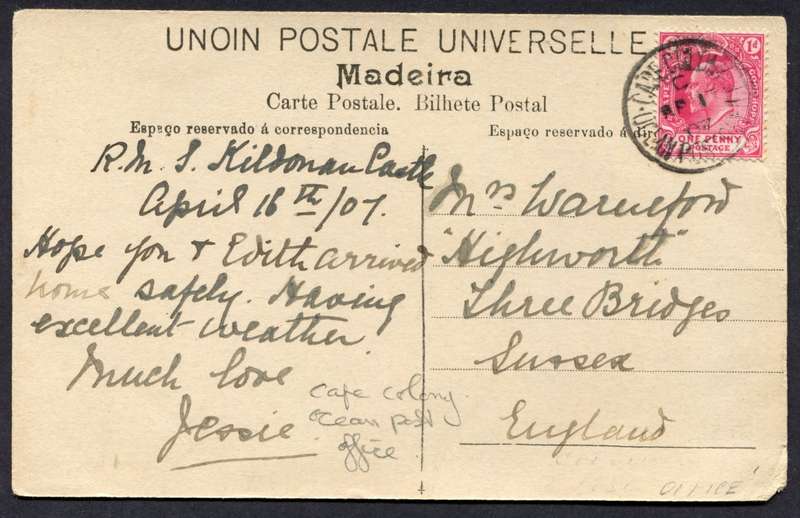 UNOIN POSTALE UNIVERSELLE
Madeira
Carte Postale. Bilhete Postal
Espaço reservado á correspondencia
Espaço reservado á
R.M.S. Kildonan Castle
April 16th/07.
Hope you & Edith arrived
home safely. Having
excellent weather
Much love
Jessie.
Mrs Warneford
"Highworth"
Three Bridges
Sussex
England
cape colony
ocean post
office
OFFICE
1d
ONE PENNY
POSTAGE